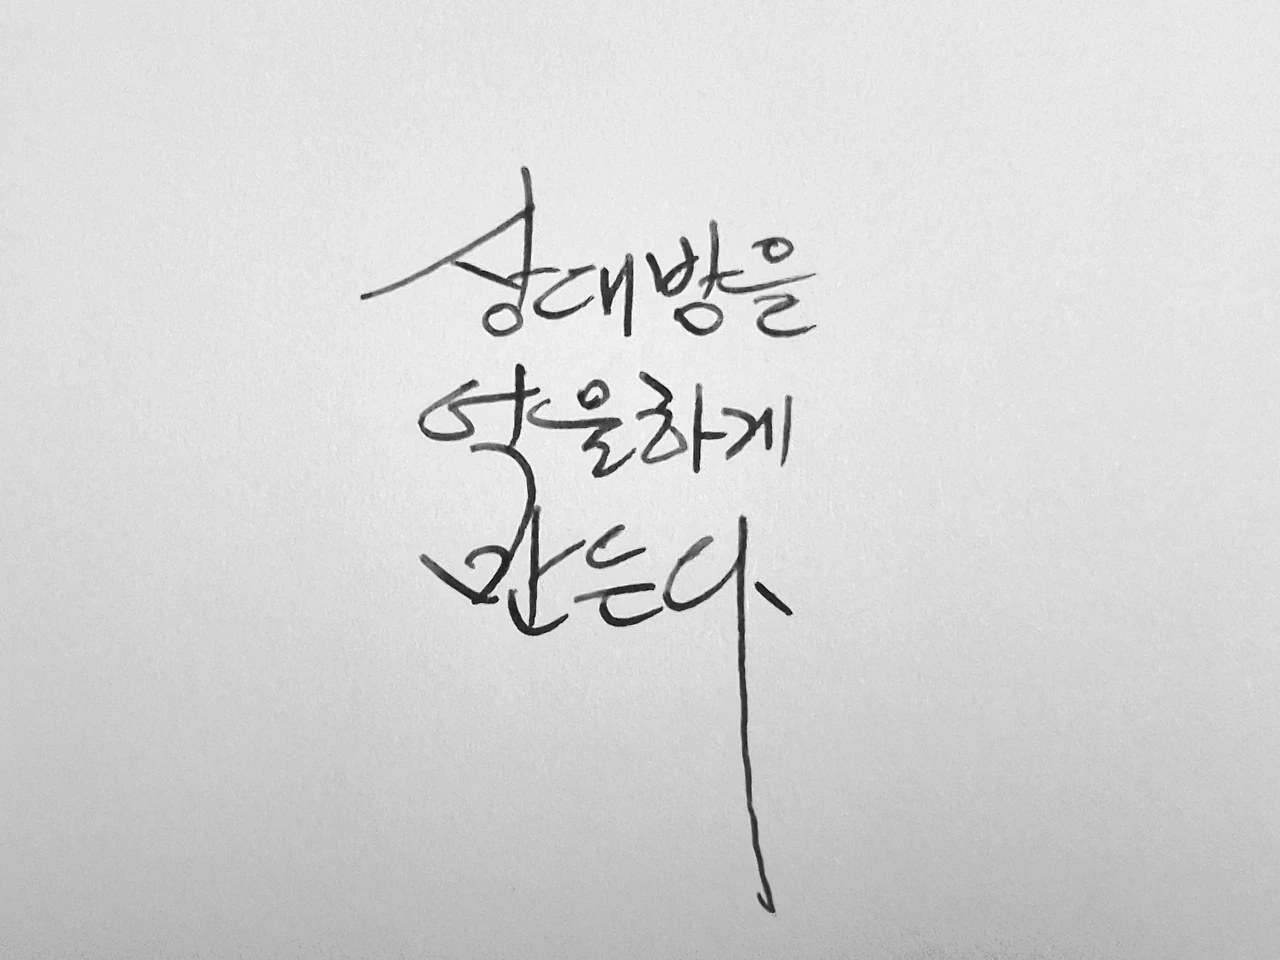 상대방을
억울하게
만든다